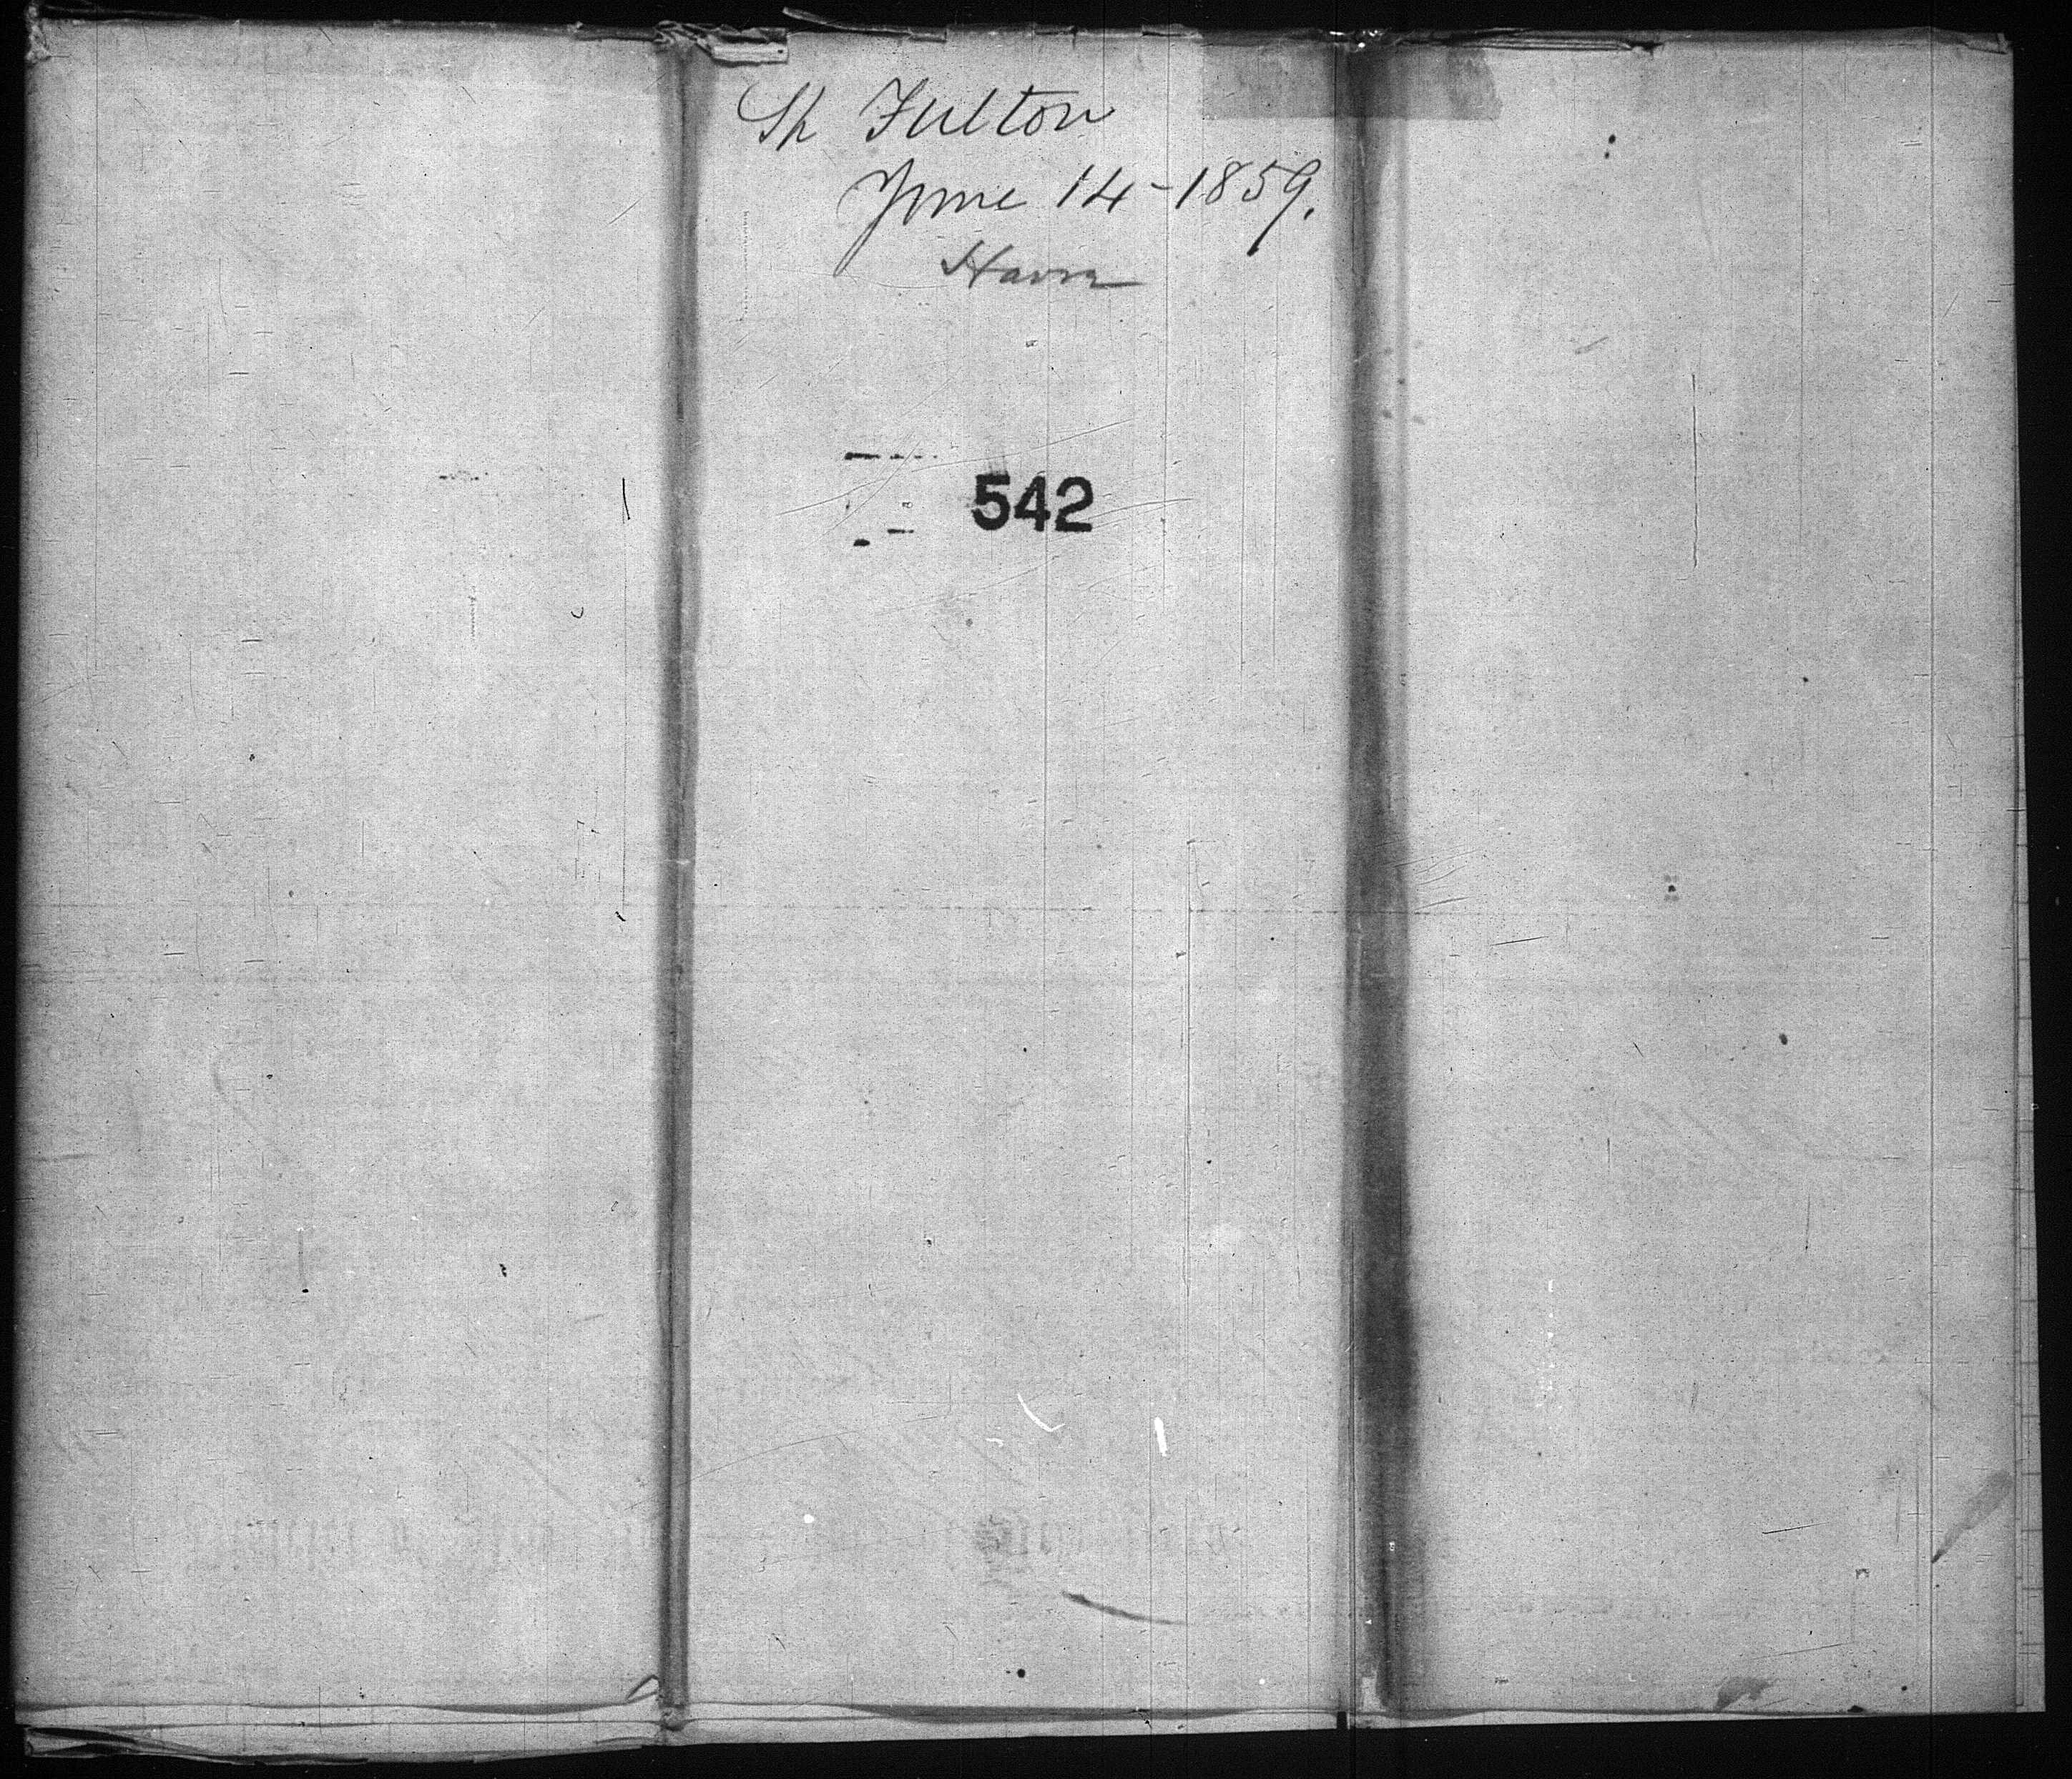 Sh Fulton
June 14-1859.
Havre
542